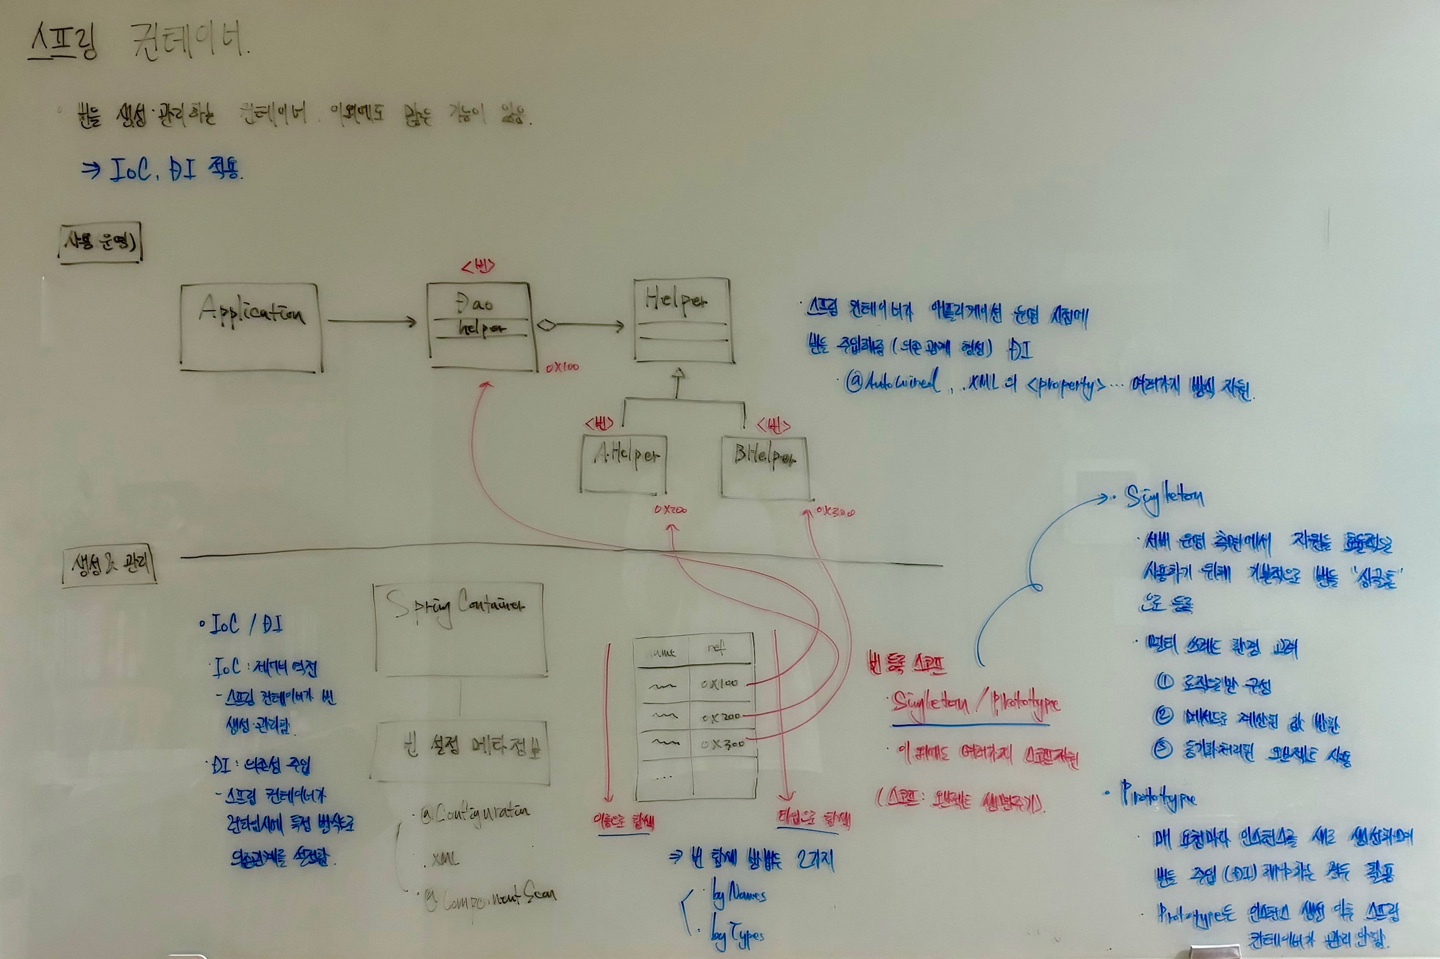 스프링 컨테이너.
· 빈을 생성·관리하는 컨테이너. 이외에도 많은 기능이 있음.
⇒ IoC, DI 적용.
사용 운영)
<빈>
Application
Dao
helper
0X100
Helper
<빈>
AHelper
0X200
<빈>
BHelper
0X300
· 스프링 컨테이너가 애플리케이션 운영 시점에
빈을 주입해줌 (의존 관계 형성) DI
@AutoWired, .XML의 <property> ... 여러가지 방식 지원.
생성 & 관리
· IoC / DI
IoC : 제어의 역전
- 스프링 컨테이너가 빈
생성·관리함.
· DI : 의존성 주입
- 스프링 컨테이너가
런타임시에 특정 방식으로
의존관계를 설정함.
Spring Container
빈 설정 메타정보
· @Configuration
. XML
· @Component Scan
name ref
0X100
0X200
0X300
...
이름으로 탐색
타입으로 탐색
⇒ 빈 탐색 방법은 2가지
· by Names
· by Types
빈 등록 스코프
· Singleton / Prototype
· 이 외에도 여러가지 스코프 지원
(스코프 : 오브젝트 생명주기).
· Singleton
· 서버 운영 측면에서 자원을 효율적으로
사용하기 위해 기본적으로 빈을 "싱글톤"
으로 등록
· 멀티 쓰레드 환경 고려
① 로직으로만 구성
② 메서드로 계산된 값 반환
③ 동기화 처리된 오브젝트 사용
· Prototype
· 매 요청마다 인스턴스를 새로 생성하여
빈을 주입 (DI) 해야하는 경우 활용
· Prototype은 인스턴스 생성 이후 스프링
컨테이너가 관리 안함.